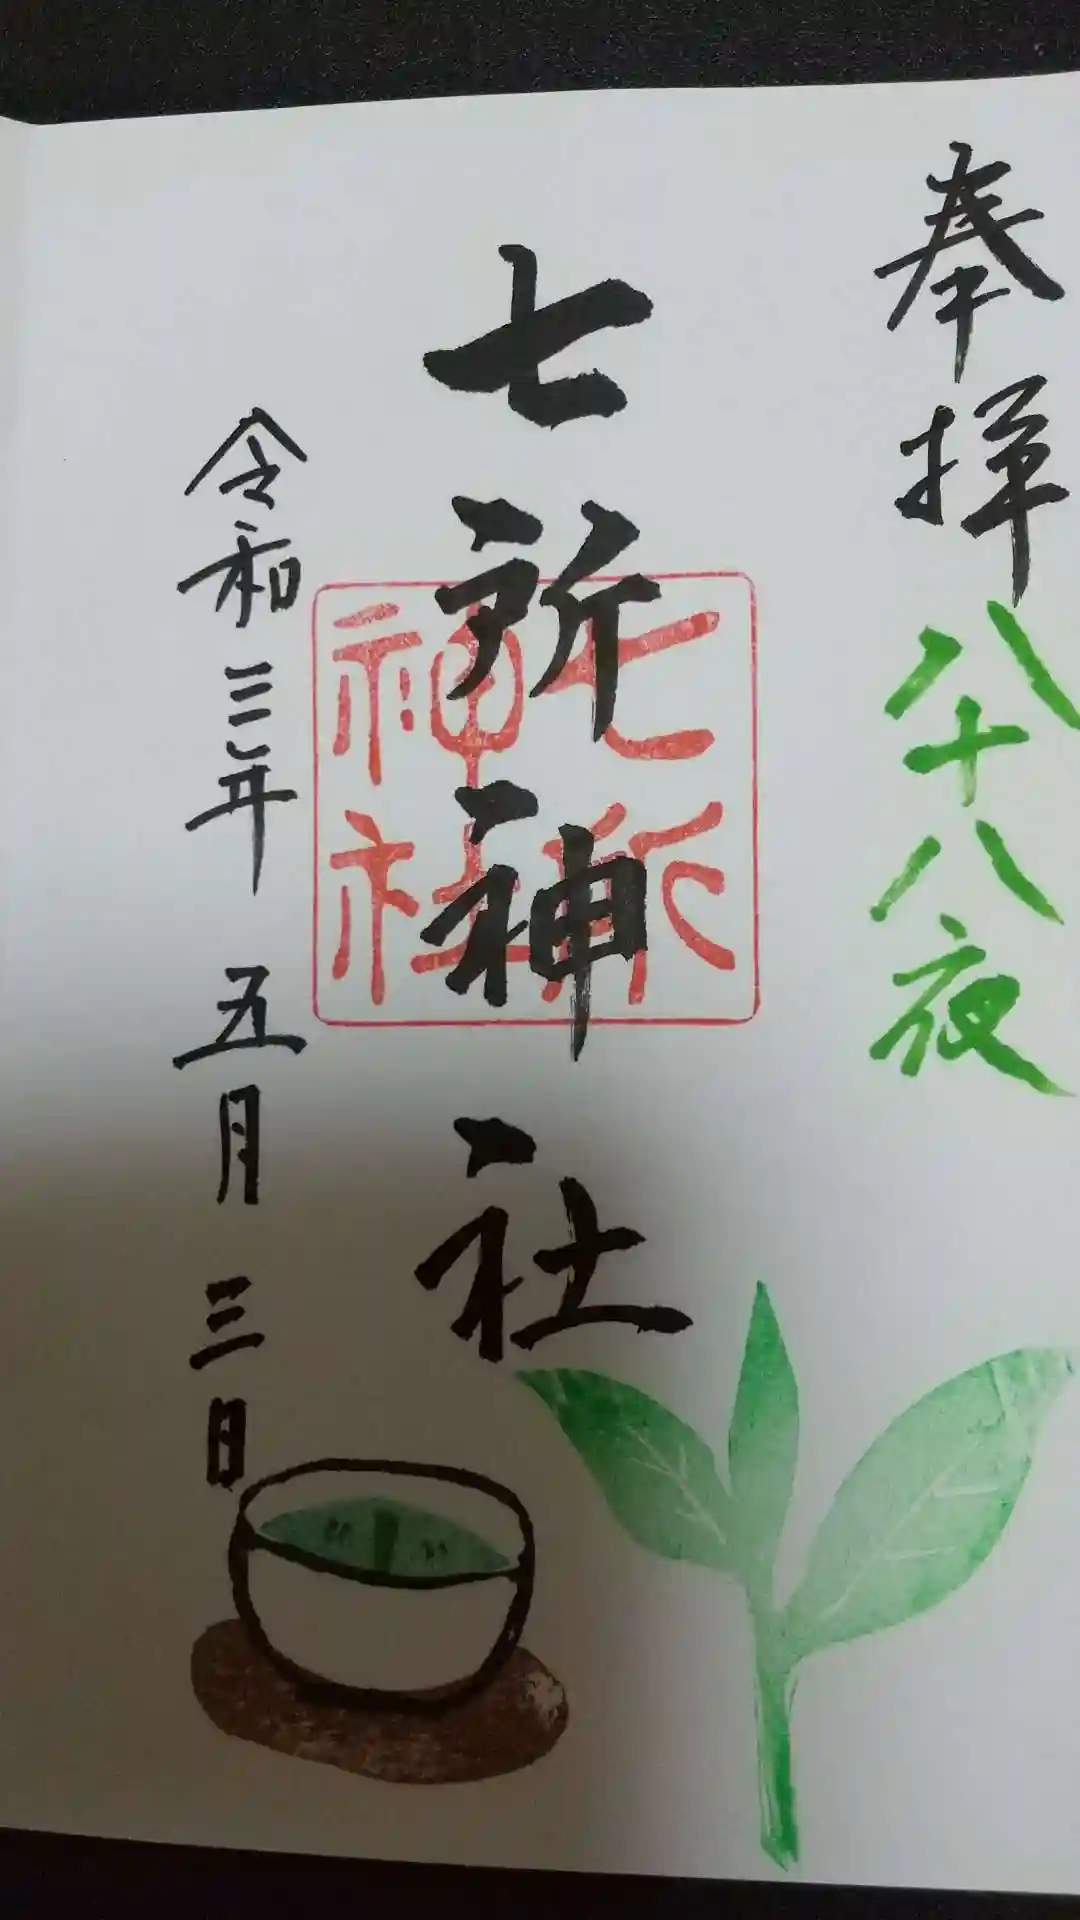 奉拝
八十八夜
七所神社
七所
神社
令和三年 五月三日